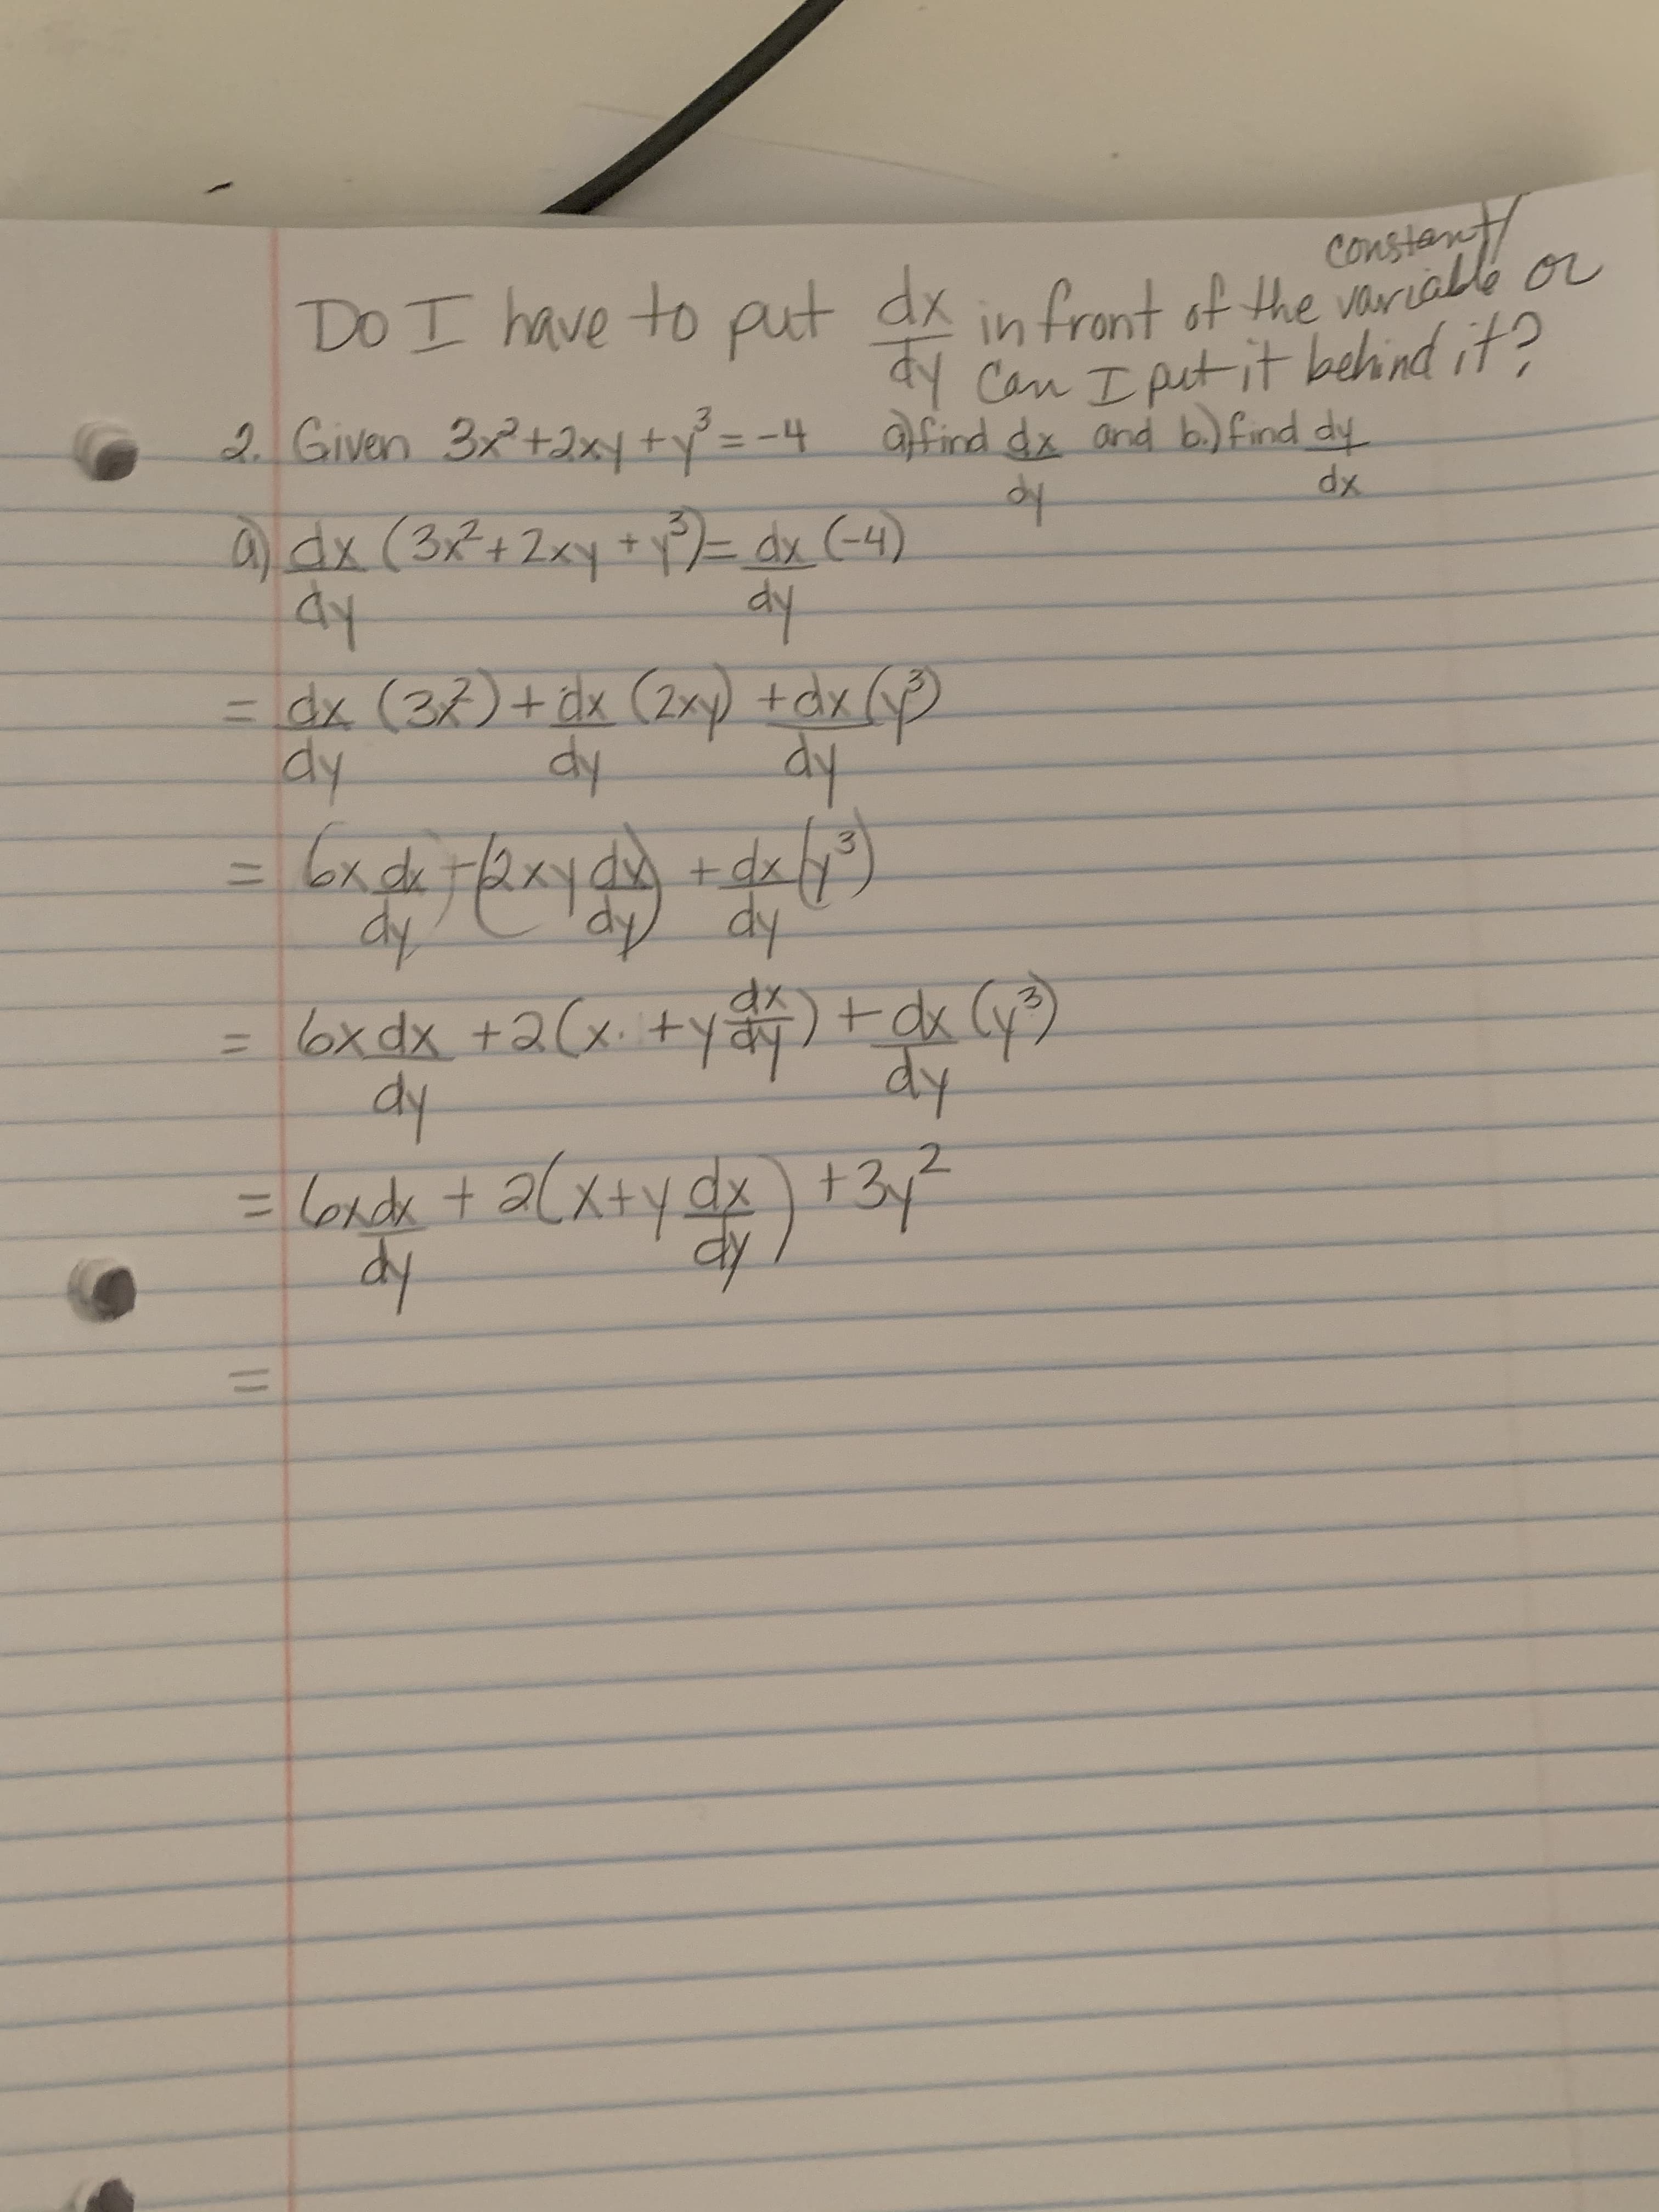 constant/
Do I have to put dx/dy in front of the variable or
can I put it behind it?
2. Given 3x²+2xy+y³=-4 a) find dx/dy and b.) find dy/dx
a) dx/dy (3x²+2xy+y³)= dx/dy (-4)
= dx/dy (3x²)+ dx/dy (2xy) + dx/dy (y³)
= 6x dx/dy) + (2xy dx/dy) + dx/dy (y³)
= 6x dx/dy +2(x· +y dx/dy) + dx/dy (y³)
= 6x dx/dy + 2(x+y dx/dy) +3y²
=